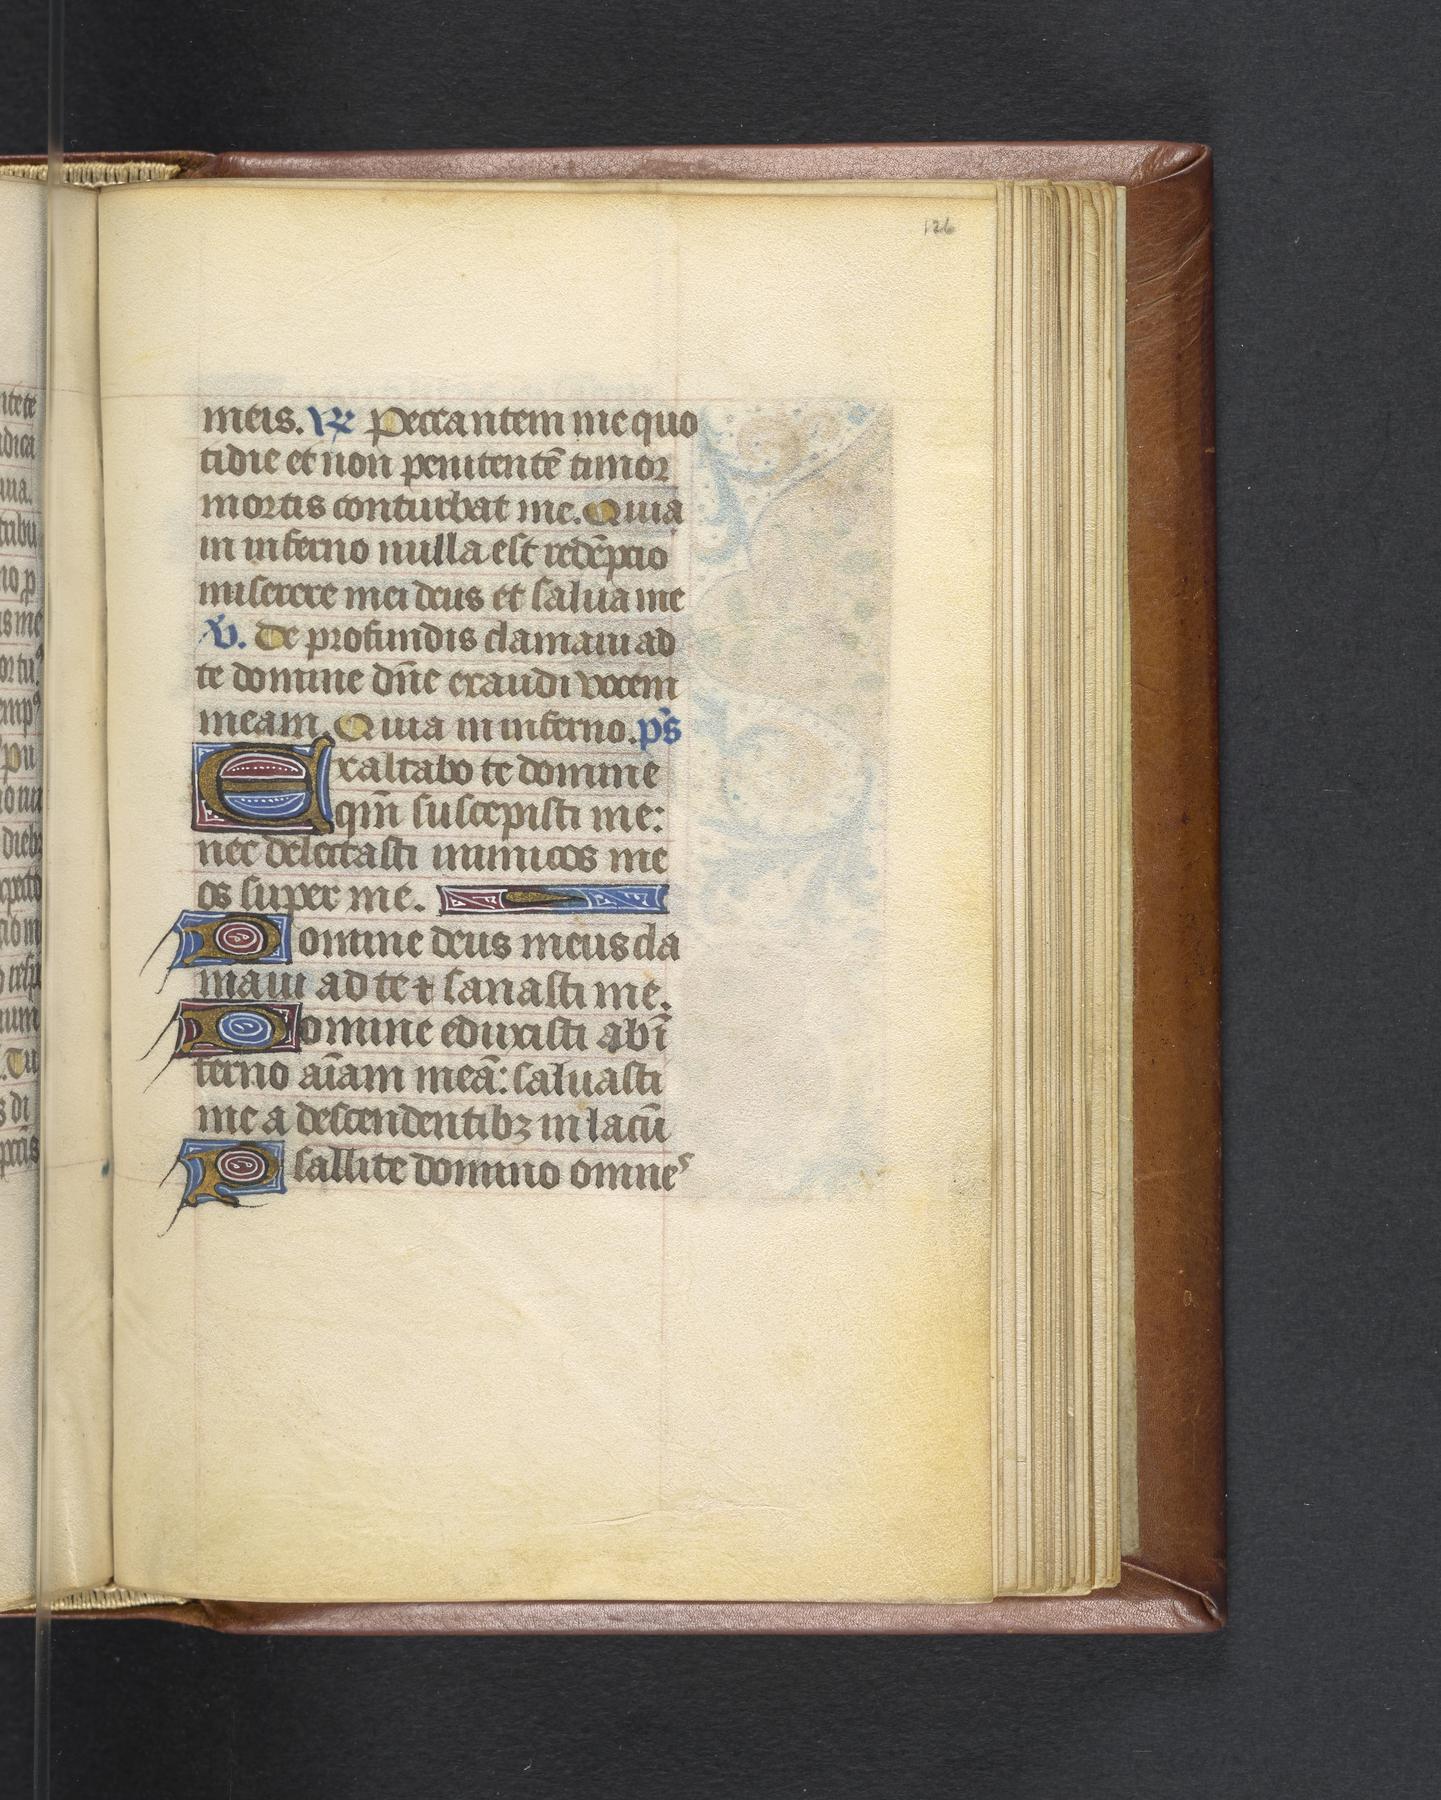 126
meis. R Peccantem me quo
tidie et non penitentē timor
mortis conturbat me. Quia
in inferno nulla est redēptio
miserere mei deus et salua me
V. De profundis clamaui ad
te domine dn̄e exaudi vocem
meam. Quia in inferno. ps
Exaltabo te domine
qm̄ suscepisti me:
nec delectasti inimicos me
os super me.
Domine deus meus cla
maui ad te ⁊ sanasti me.
Domine eduxisti ab ī
ferno aīam meā: saluasti
me a descendentibꝫ in lacū
Psallite domino omnes